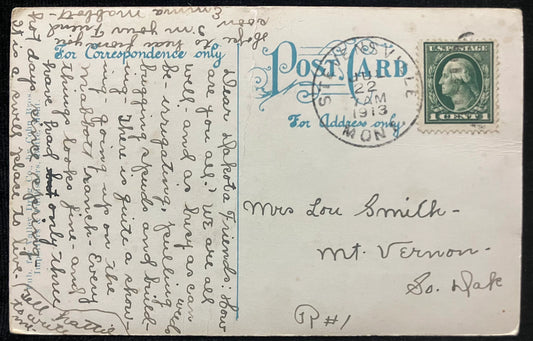 POST CARD
For Correspondence only
For Address only
STEVENSVILLE
22
7 AM
1913
MONT
U.S. POSTAGE
1 CENT 1
Mrs Lou Smith-
Mt. Vernon-
So. Dak
R #1
Dear Dakota Friends: How
are you all? We are all
well and as busy as can
be- irrigating, pulling weeds
bugging spuds and build-
ing. There is quite a show-
ing going up on the
Mabbott ranch- Every
thing looks fine- and
have had only three
hot days since spring-
It is a swell place to live-
Tell Mattie
to write
to me
Hope to hear from you
soon
I'm your Friend
Emma Mabbott-